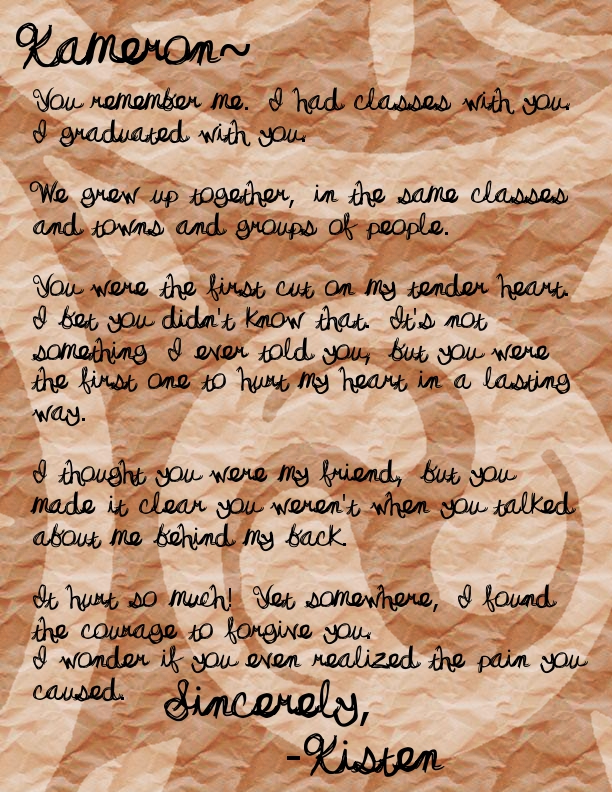 Kameron~
You remember me. I had classes with you.
I graduated with you.
We grew up together, in the same classes
and towns and groups of people.
You were the first cut on my tender heart.
I bet you didn't know that. It's not
something I ever told you, but you were
the first one to hurt my heart in a lasting
way.
I thought you were my friend, but you
made it clear you weren't when you talked
about me behind my back.
It hurt so much! Yet somewhere, I found
the courage to forgive you.
I wonder if you even realized the pain you
caused.
Sincerely,
-Kisten